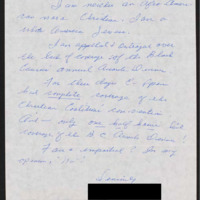 I am neither an Afro Amer-
ican nor a Christian. I am a
white American
I am appalled & outraged over
the lack of coverage of the Black
Caucus Annual Awards Dinner
One then hops C-Span
but complete coverage of the
Christian Coalition convention
And — only one half hour
coverage of the B.C. Awards Dinner!
Fair & impartial? In my
opinion, "No".
Sincerely